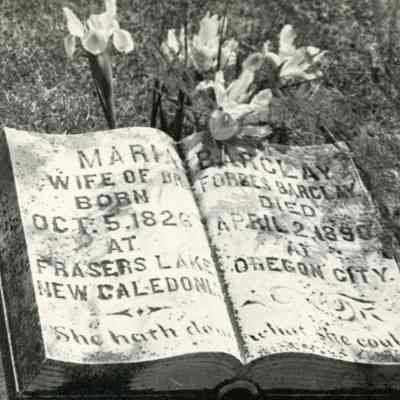 MARIA BARCLAY
WIFE OF DR. FORBES BARCLAY
BORN
OCT. 5, 1826
AT
FRASERS LAKE
NEW CALEDONIA.
DIED
APRIL 2, 1890
AT
OREGON CITY.
She hath done what she coul